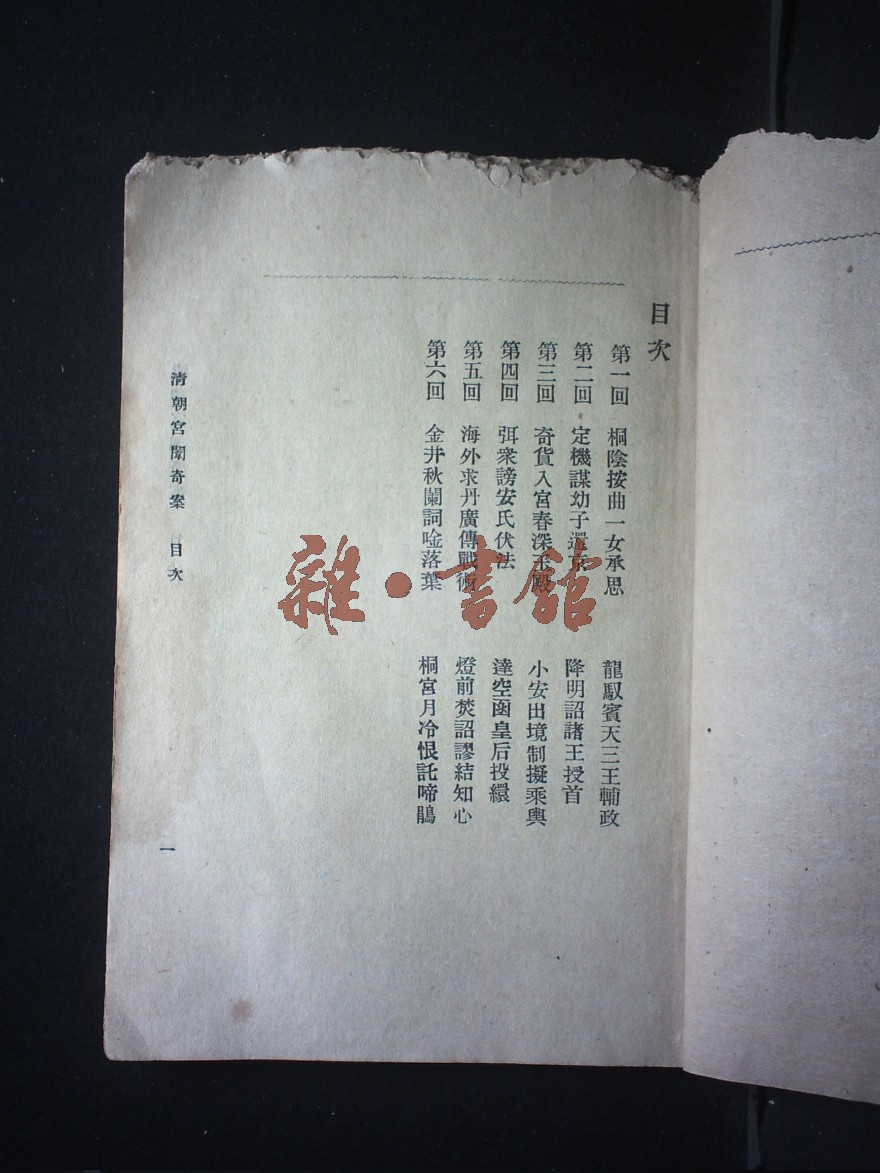 目次
第一回 桐陰按曲一女承思 龍馭賓天三王輔政
第二回 定機謀幼子還京 降明詔諸王授首
第三回 奇貨入宮春深玉殿 小安出境制擬乘輿
第四回 弭衆謗安氏伏法 達空函皇后投繯
第五回 海外求丹廣傳戰術 燈前焚詔謬結知心
第六回 金井秋闌詞唫落葉 桐宮月冷恨託啼鵑
清朝宮闈奇案 目次
一
雜·書館